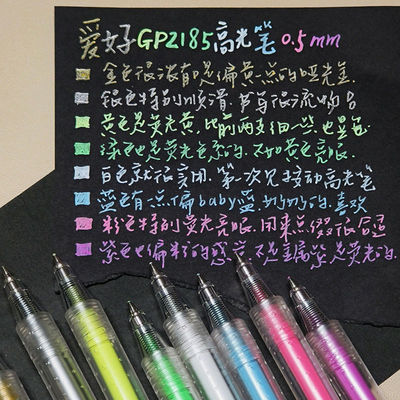 爱好GP2185高光笔0.5mm
金色很浓有口是偏黄一点的哑光金
银色特别顺滑.书写很流畅
黄色是荧光黄.比前两支细一些也显色
绿色也是荧光色系的.不如黄色亮眼
白色就很实用.第一次见按动高光笔
蓝色有点偏baby蓝 奶奶的.喜欢
粉色特别荧光亮眼.用来点缀很合适
紫色也偏粉的感觉.不是金属紫是荧光的.